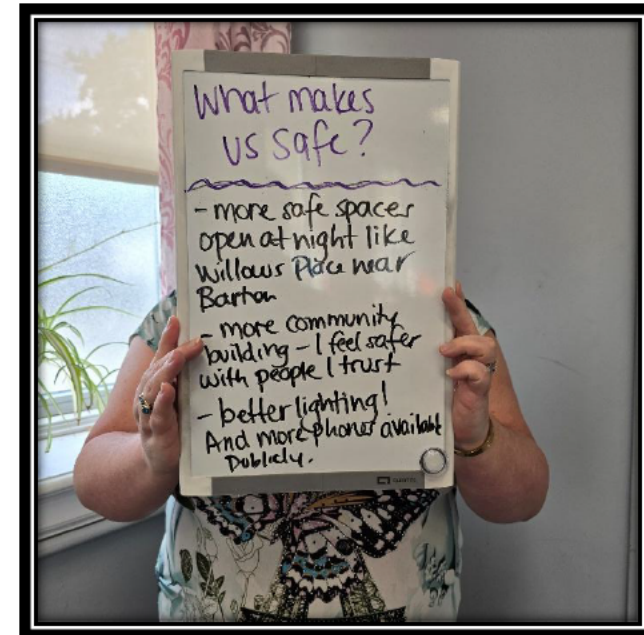 What makes
us safe?
- more safe spaces
open at night like
Willows Place near
Barton
- more community
building - I feel safer
with people I trust
- better lighting!
And more phones available
Publicly.